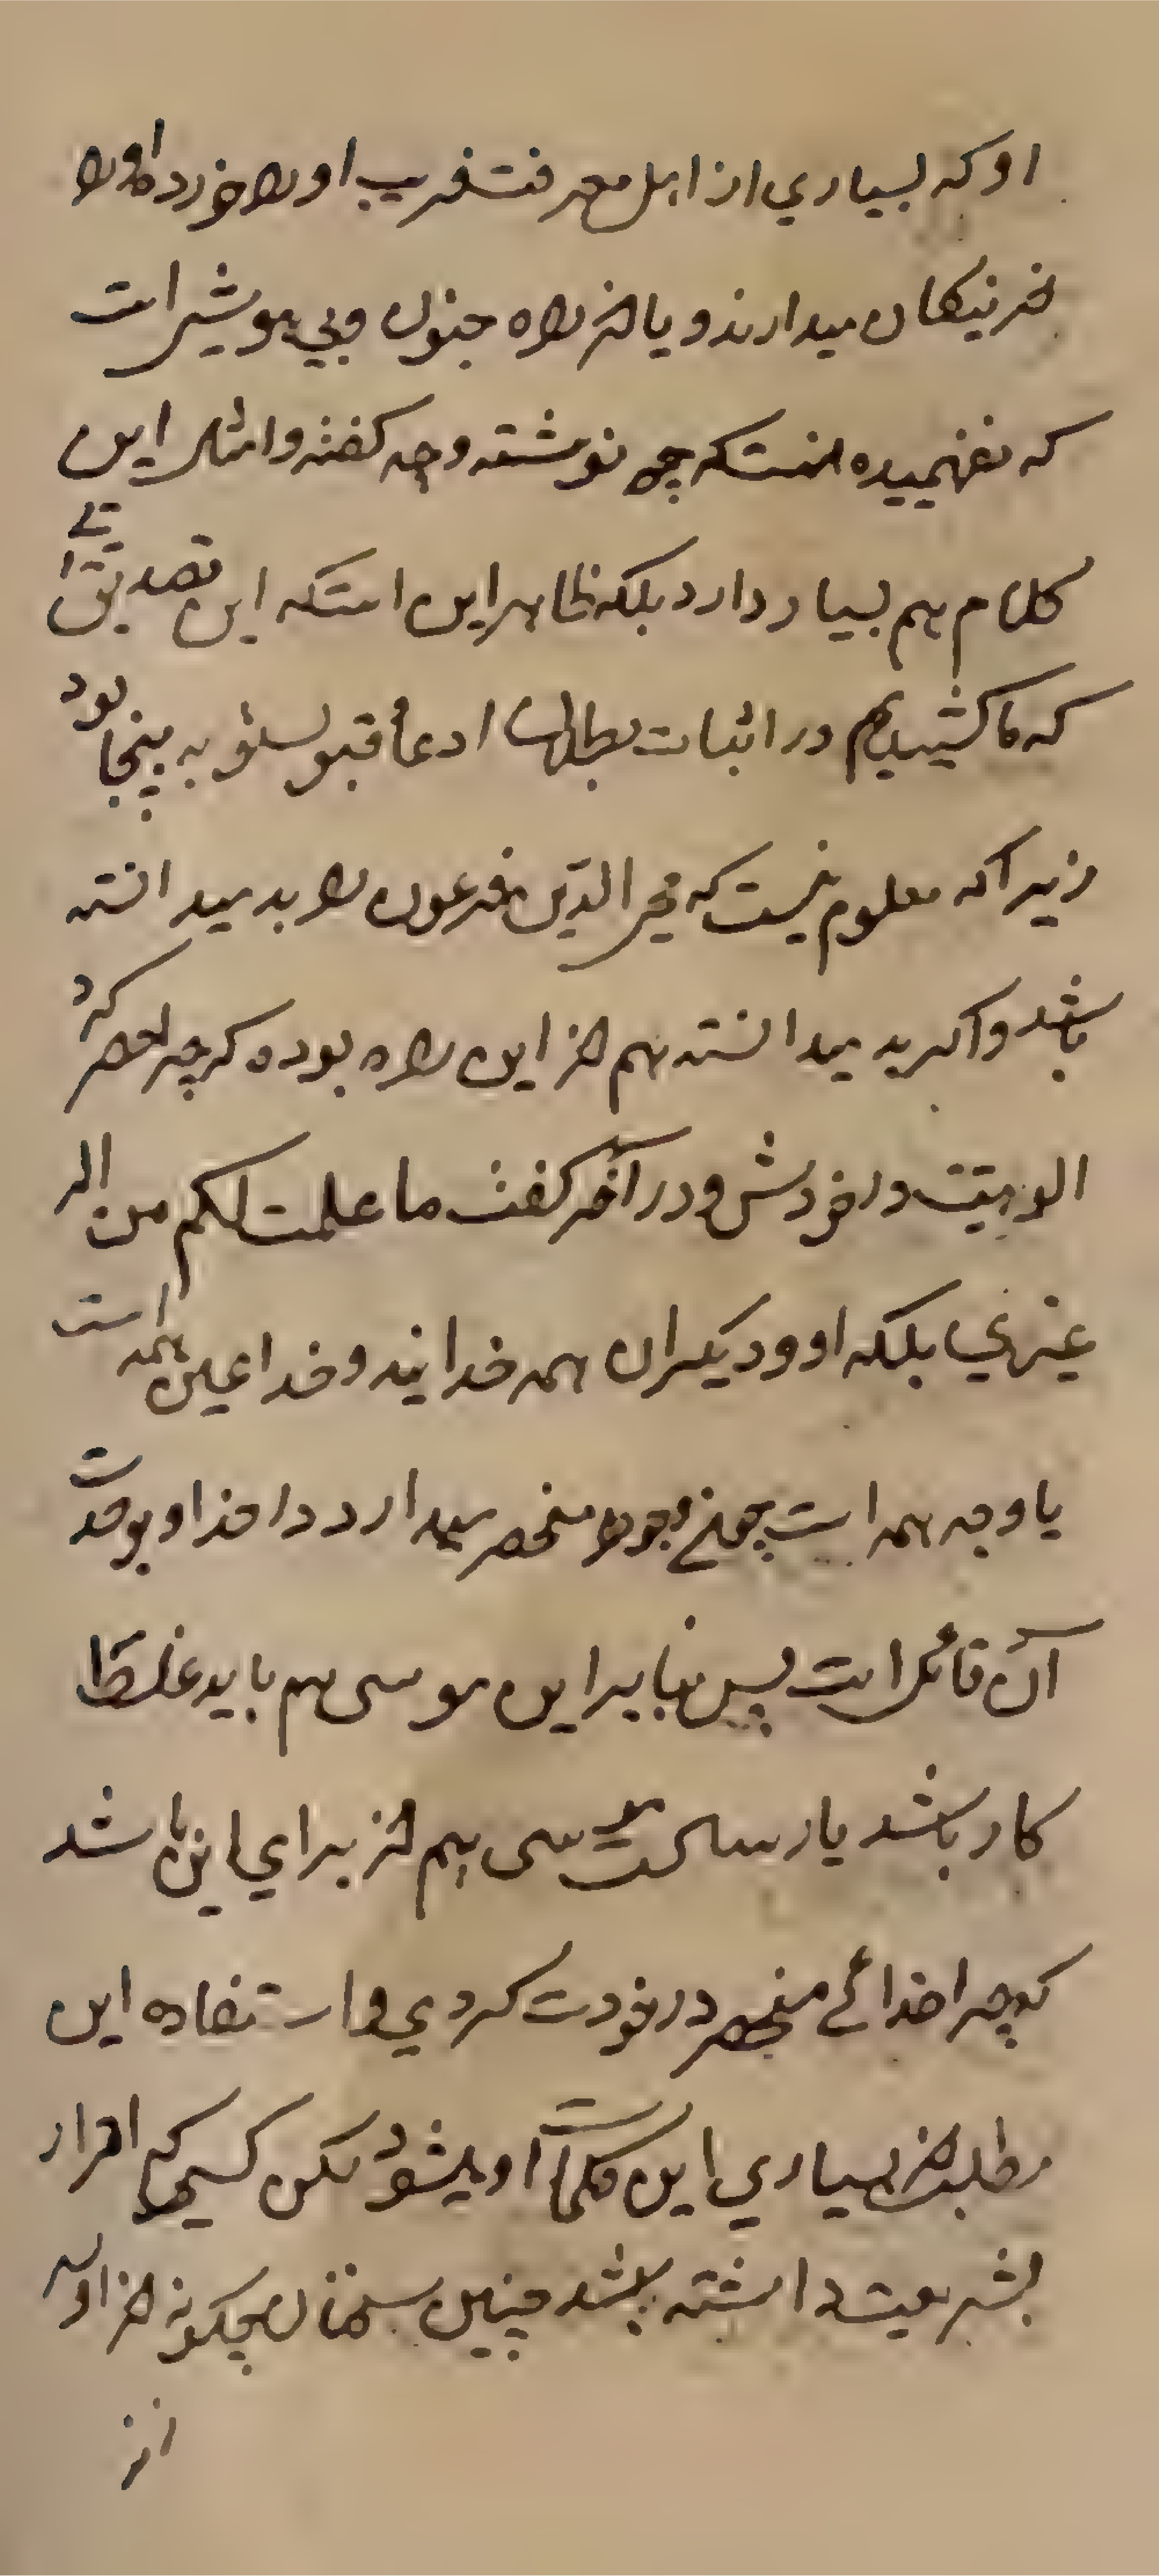 او که بسیاري از اهل معرفت فریب او را خورده او را
از نیکان میدارند و یا از راه جنون وبی هوشیست
که نفهمیده است که چه نوشته وچه کفته وامثال این
کلام هم بسیار دارد بلکه ظاهر این استکه این تصدیقاتے
که ما کشیدیم در اثبات بطالها ادعأ قبولسئو به بیجا بود
زیراکه معلوم نیست که محی الدین فرعون را بد میدانسته
باشد واکر بد میدانسته هم از این راه بوده که چرا حصر کرد
الوهیت در خودش ودر آخر کفت ما علمت لکم من اله
غیري بلکه او ودیکران همه خدایند وخدا عین همه است
یا وجه همه است چونکه وجود منحصر میدارد در خدا و بوحدت
آن قائل است پس بنابراین موسی هم باید غلط
کار باشد یا رسالت موسی هم از براي این باشد
که چرا خدائے منحصر در خودت کردي و استفاده این
مطلب از بسیاري این کلمات او میشود لکن کسیکه اقرار
بشریعت داشته باشد چنین سخنان چکونه از او سر
از